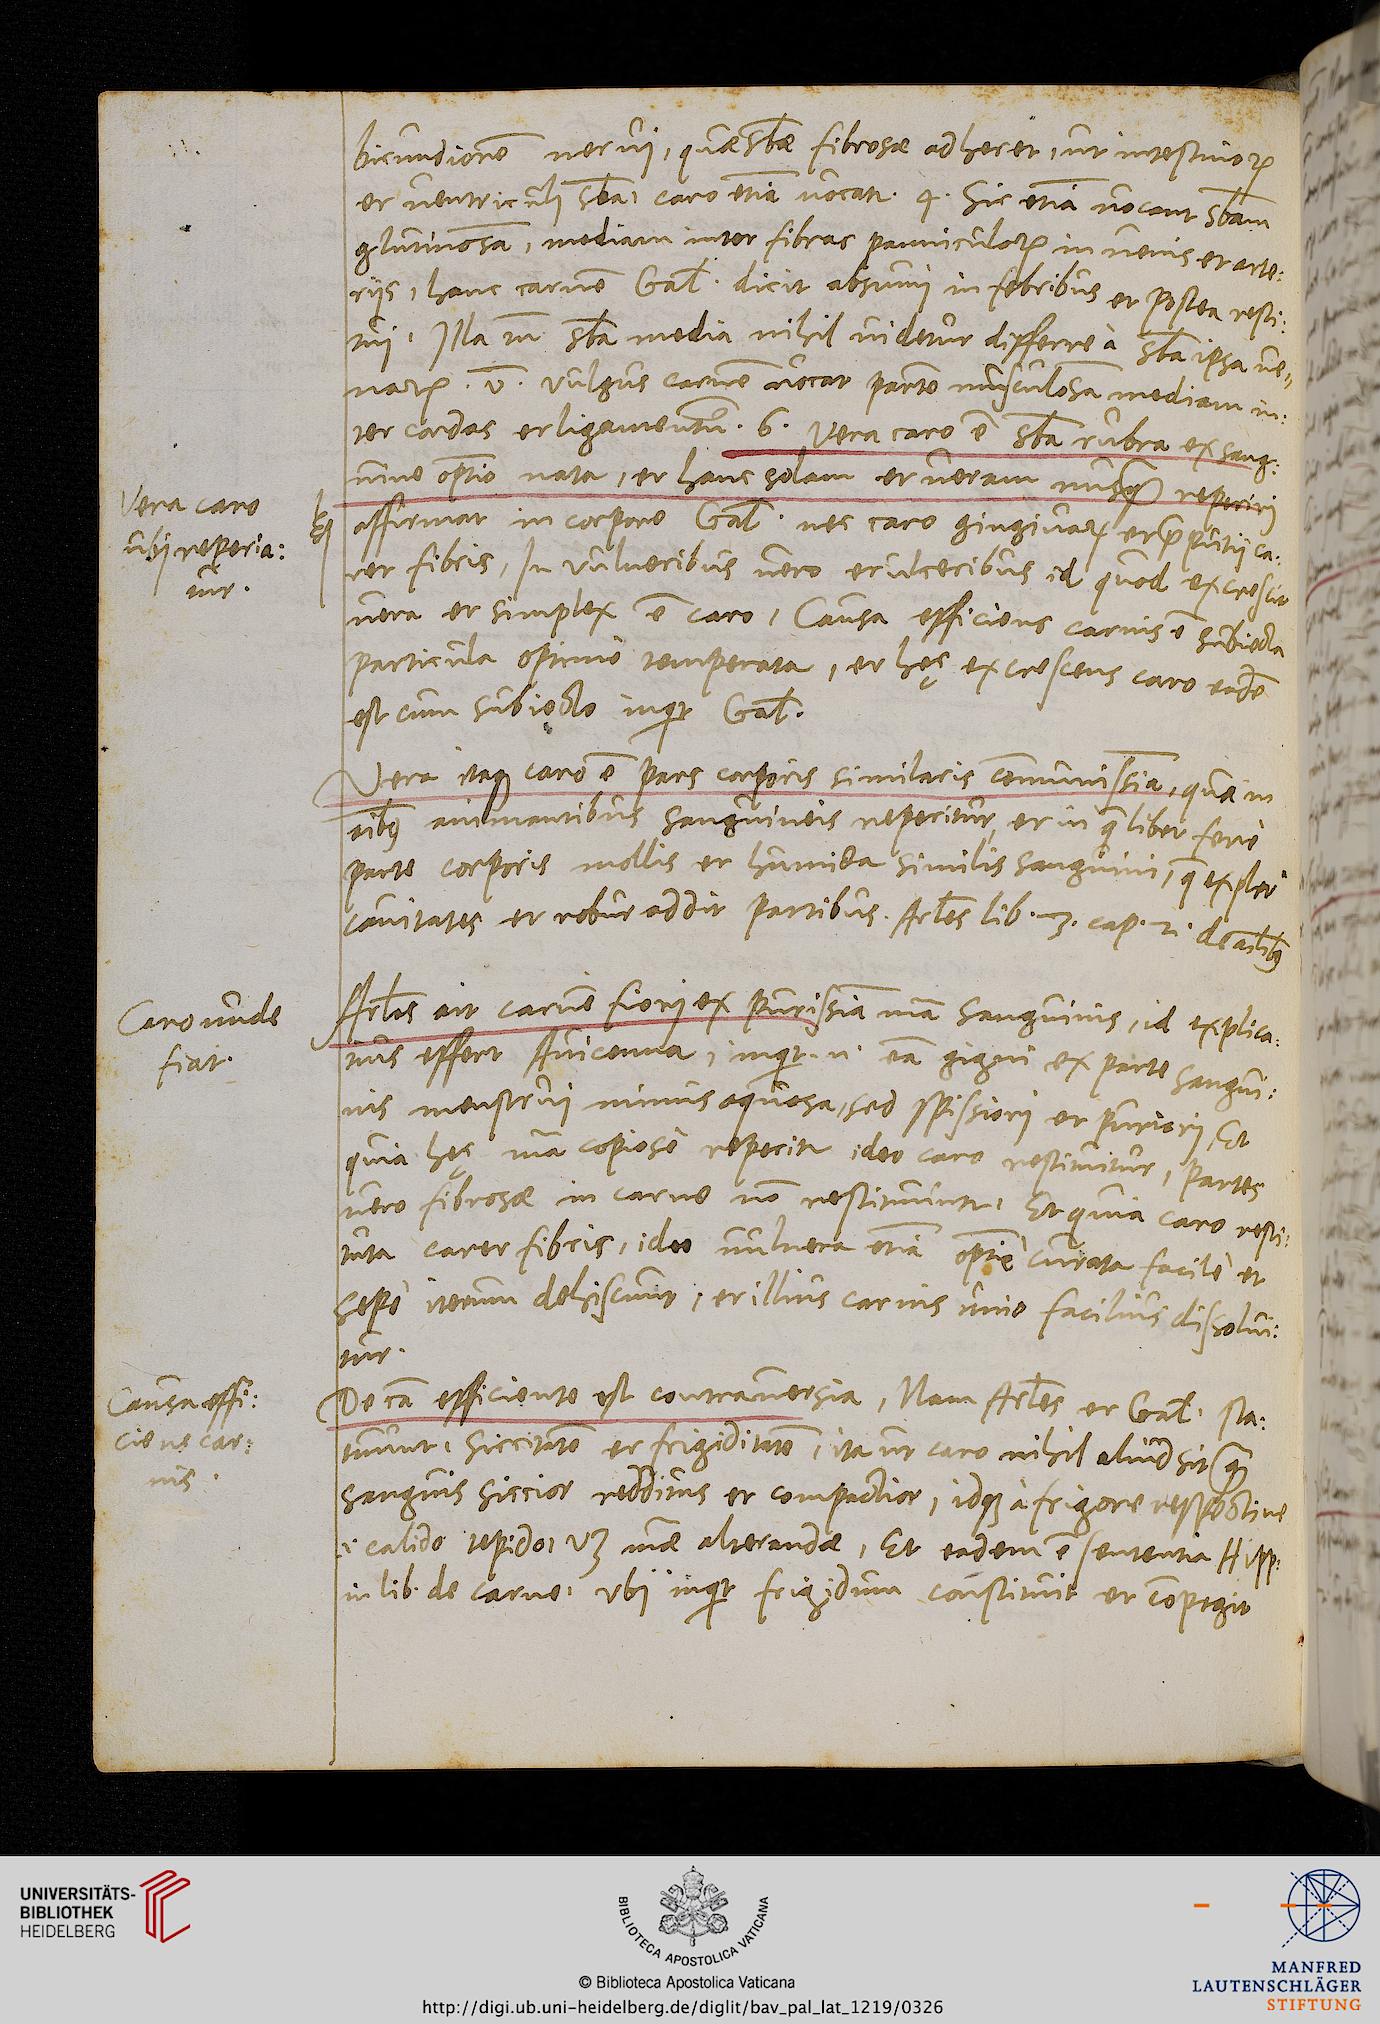 bicundiorē nervi, quæ sb̄æ fibrosæ adheret, ut intestinoꝝ
et ventriculi sb̄a, caro etiā vocat. 4. Sic etiā vocant sb̄am
glutinosā, mediam inter fibras panniculoꝝ in venis et arte:
rijs, hanc carnē Gal. dicit absumi in febribus et postea resti:
tui. Illa tn̄ sb̄a media nihil videtur differre à sb̄a ipsa ve:
naꝝ. v. vulgus carnē vocat partē musculosā mediam in:
ter cordas et ligamentū. 6. Vera caro ē sb̄a rubra ex sang:
uine optīo nata, et hanc solam et veram nusꝗ reperiri
affirmat in corpore Gal. nec caro gingivaꝝ et p̄putij ca:
ret fibris, In vulneribus vero et ulceribus id quod excrescit
vera et simplex ē caro, Causa efficiens carnis ē subiecta
particula optimè temperata, et hęc excrescens caro eadē
est cum subiecto inqt Gal.
Vera itaq caro ē pars corporis similaris cōmunissīa, quā in
oībꝰ animantibus sanguineis reperitur, et in qlibet ferè
parte corporis mollis et humida similis sanguini, q explet
cavitates et robur addit partibus. Arles lib. 3. cap. 2. de aīalibꝰ
Arles ait carnē fieri ex purissīa mā sanguinis, id explica:
tius effert Avicenna, inqt. n. eā gigni ex parte sangui:
nis menstrui minus aquosa, sed spissiori et puriori, Et
quia hęc mā copiosè reperitr ideo caro restituitur, partes
vero fibrosæ in carne nō restituuntr. Et quia caro resti:
tuta caret fibris, ideo vulnera etiā optīè curata facilè et
sepè iterum dehiscunt, et illius carnis unio facilius dissolui:
tur.
De cā efficiente est contraversia, Nam Arles et Gal. sta:
tuunt, siccitatē et frigiditatē, ita ut caro nihil aliud sit ꝗ
sanguis siccior redditus et compactior, idq à frigore respectivè
.i. calido tepido, vꝫ mæ alterandæ, Et eadem ē sententia Hipp:
in lib. de carne. vbi inqt frigidum constituit et cōpegit
Vera caro
ubi reperia:
tur.
Caro unde
fiat.
Causa effi:
ciens car:
nis.
UNIVERSITÄTS-
BIBLIOTHEK
HEIDELBERG
BIBLIOTECA APOSTOLICA VATICANA
© Biblioteca Apostolica Vaticana
http://digi.ub.uni-heidelberg.de/diglit/bav_pal_lat_1219/0326
MANFRED
LAUTENSCHLÄGER
STIFTUNG